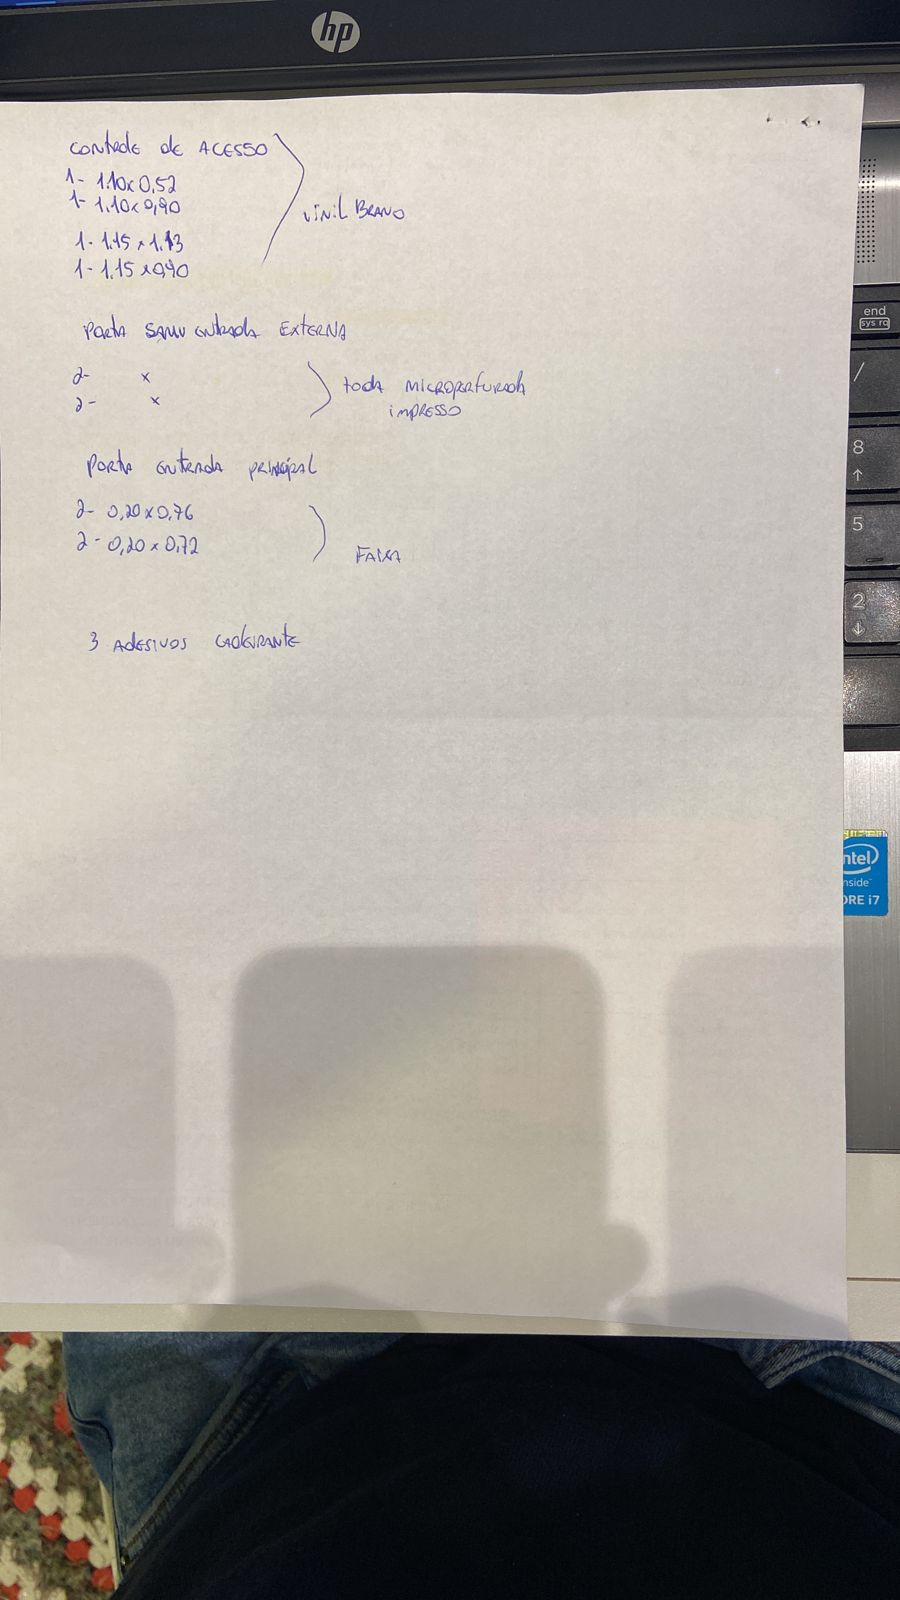 hp
CONTROLE DE ACESSO
1- 1.10 x 0,52
1- 1.10 x 0,90
1- 1.15 x 1.13
1- 1.15 x 0,90
VINIL BRANO
PORTA SAMU ENTRADA EXTERNA
2- x
2- x
toda MICROPERFURADA
IMPRESSO
PORTA ENTRADA PRINCIPAL
2- 0,20 x 0,76
2- 0,20 x 0,72
FAIXA
3 ADESIVOS CADEIRANTE
end
sys rq
/
8
↑
5
2
↓
ntel
nside™
ORE i7